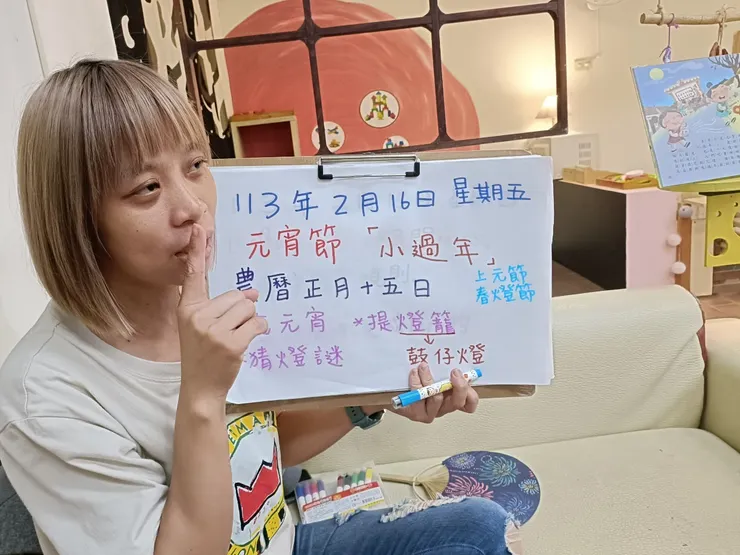 113年2月16日 星期五
元宵節「小過年」
農曆正月十五日
上元節
春燈節
元宵 *提燈籠
猜燈謎 鼓仔燈